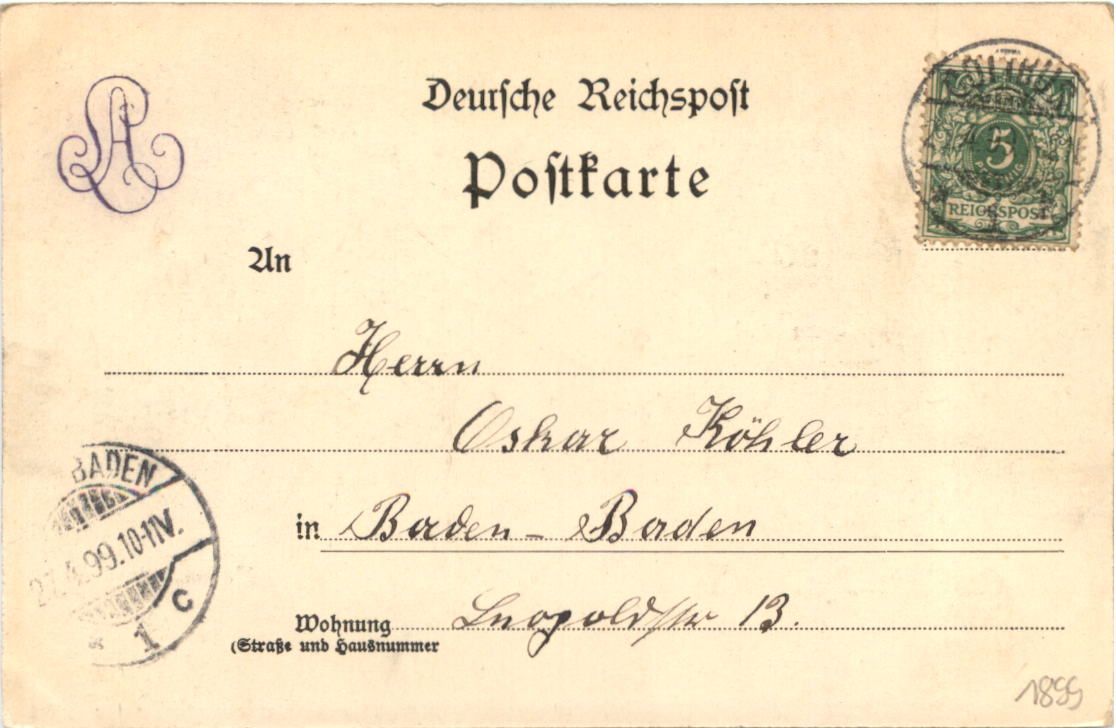 Deutsche Reichspost
Postkarte
5
PFENNIG
REICHSPOST
An
Herrn
Oskar Köhler
in Baden-Baden
Wohnung Leopoldstr 13.
(Straße und Hausnummer
BADEN
99.10-11V.
* 1 c
1899